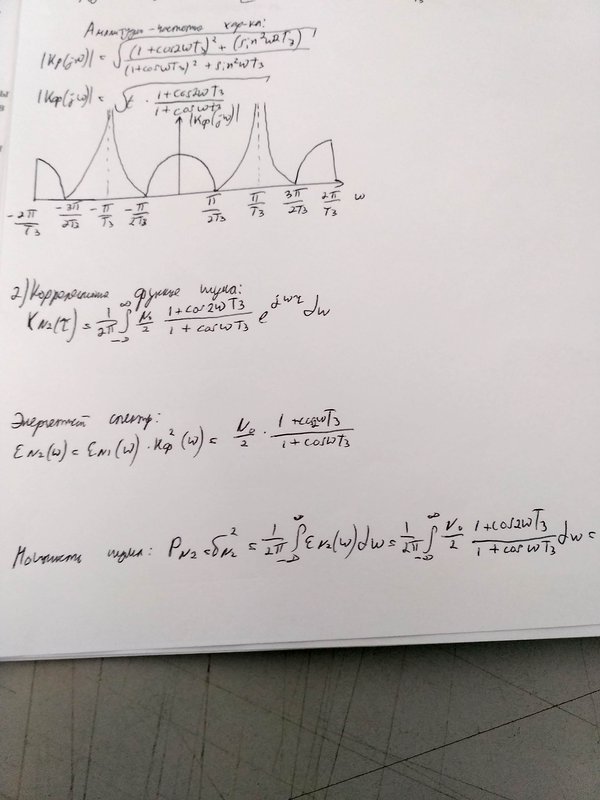 Амплитудно-частотная хар-ка:
|Kф(jω)| = √((1+cos2ωT₃)² + (sin²ω2T₃) / (1+cosωT₃)² + sin²ωT₃)
|Kф(jω)| = √(t · (1+cos2ωT₃)/(1+cosωT₃))
|Kф(jω)|
-2π/T₃ -3π/2T₃ -π/T₃ -π/2T₃ π/2T₃ π/T₃ 3π/2T₃ 2π/T₃ ω
2) Корреляционная функция шума:
K_N2(τ) = 1/2π ∫_{-∞}^{∞} N₀/2 (1+cos2ωT₃)/(1+cosωT₃) e^{jωτ} dω
Энергетический спектр:
ε_N2(ω) = ε_N1(ω) · Kф²(ω) = N₀/2 · (1+cos2ωT₃)/(1+cosωT₃)
Мощность шума: P_N2 = δ_N2² = 1/2π ∫_{-∞}^{∞} ε_N2(ω)dω = 1/2π ∫_{-∞}^{∞} N₀/2 (1+cos2ωT₃)/(1+cosωT₃) dω =